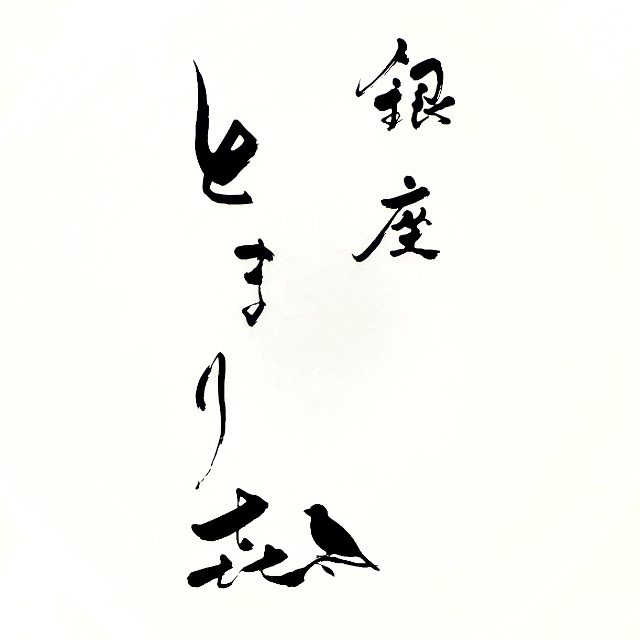 銀座
とまり㐂